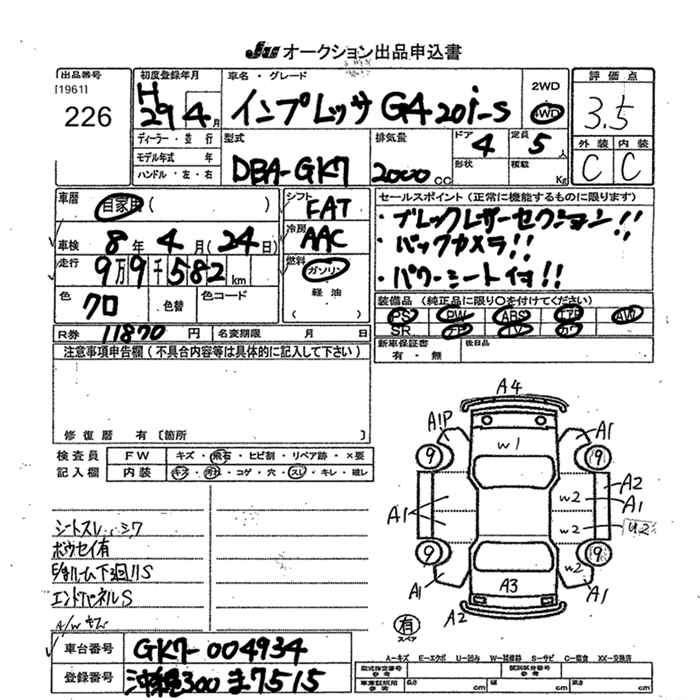 JU オークション出品申込書
出品番号
[1961]
226
初度登録年月
H29 4月
車名・グレード
インプレッサ G4 20i-S
2WD
4WD
評価点
3.5
外装 内装
C C
ディーラー・並行
モデル年式 年
ハンドル・左・右
型式
DBA-GK7
排気量
2000cc
ドア 4
形状
定員 5人
積載 Kg
車暦
自家用 ( )
車検 8年 4月 (24日)
走行 9万9千582km
色 クロ 色替 色コード
R券 11870円 名変期限 月 日
シフト
FAT
冷房
AAC
燃料
ガソリン
軽油
( )
セールスポイント (正常に機能するものに限ります)
・ブレックレザーセクション!!
・バックカメラ!!
・パワーシート付!!
装備品 (純正品に限り○を付けてください)
PS PW ABS エアB AW
SR ナビ TV カワ
新車保証書
有・無
後日品
注意事項申告欄 (不具合内容等は具体的に記入して下さい)
修復歴 有 [箇所 ]
検査員
記入欄
FW キズ・飛石・ヒビ割・リペア跡・×要
内装 キズ・汚れ・コゲ・穴・スレ・キレ・破レ
シートスレ シワ
ボウセイ有
E/gルーム下廻りS
エンドパネルS
A/W キズ
A4
A1P
A1
9
9
W1
A2
A1
W2
W2
U2
A1
9
9
W2
A1
A1
A3
A2
有
スペア
A…キズ E…エクボ U…凹み W…補修跡 S…サビ C…腐食 XX…交換済
車台番号 GK7-004934
登録番号 沖縄300ま7515
型式指定番号
参考
類別区分番号
参考
車庫証明用
参考
長さ cm
幅 cm
高さ cm